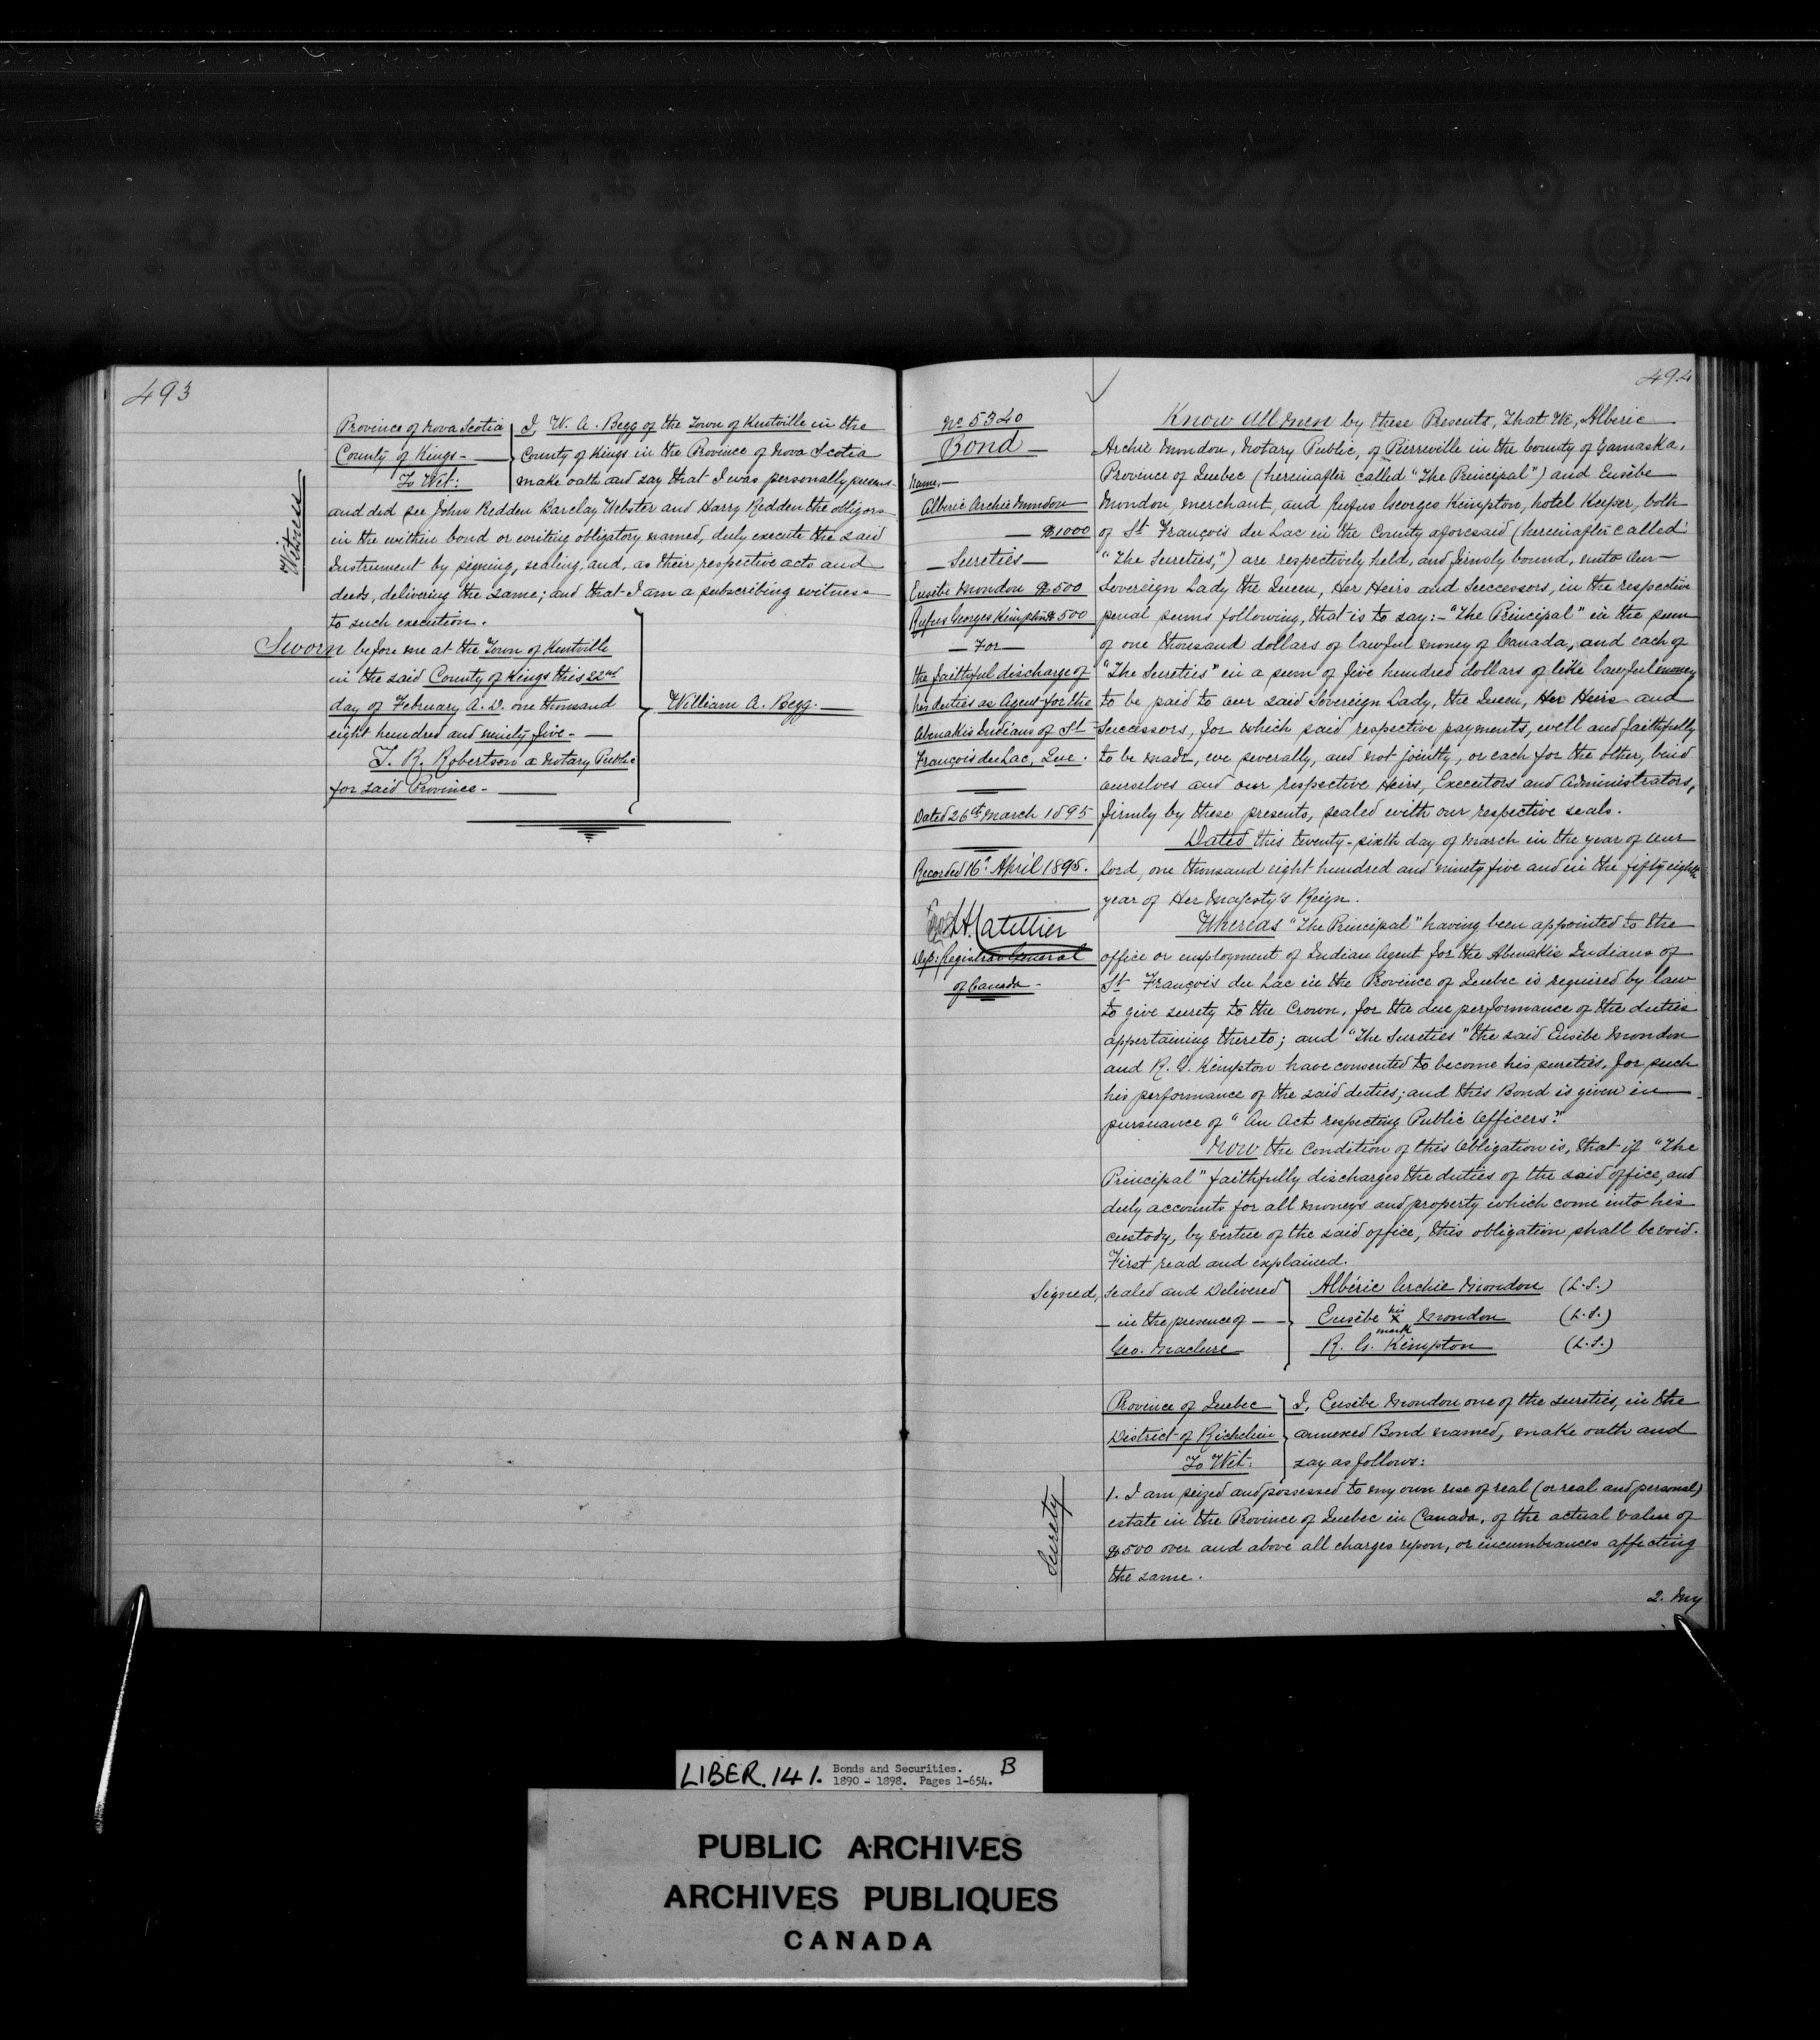 493
Province of Nova Scotia
County of Kings -
To Wit:
I, W. A. Begg of the Town of Kentville in the
County of Kings in the Province of Nova Scotia
make oath and say that I was personally present
and did see John Redden Barclay Webster and Harry Redden the obligors
in the within bond or writing obligatory named, duly execute the said
Instrument by signing, sealing, and, as their respective acts and
deeds, delivering the same; and that I am a subscribing witness
to such execution.
Witness
Sworn before me at the Town of Kentville
in the said County of Kings this 22nd
day of February A. D. one thousand
eight hundred and ninety five -
T. R. Robertson a Notary Public
for said Province -
William A. Begg.
494
No 5340
Bond
Name,
Alberic Archie Mondon
$1000
Sureties
Eusèbe Mondon $500
Rufus Georges Kimpton $500
For
the faithful discharge of
his duties as Agent for the
Abenakis Indians of St
François du Lac, Que.
Dated 26th March 1895
Recorded 16th April 1895.
Catellier
Dep: Registrar General
of Canada -
Know All Men by these Presents, That We, Alberic
Archie Mondon, Notary Public, of Pierreville in the County of Yamaska,
Province of Quebec (hereinafter called "The Principal") and Eusèbe
Mondon, merchant, and Rufus Georges Kimpton, hotel Keeper, both
of St François du Lac in the County aforesaid (hereinafter called
"The Sureties,") are respectively held, and firmly bound, unto Our
Sovereign Lady the Queen, Her Heirs and Successors, in the respective
penal sums following, that is to say:- "The Principal" in the sum
of one thousand dollars of lawful money of Canada, and each of
"The Sureties" in a sum of five hundred dollars of like lawful money
to be paid to our said Sovereign Lady, the Queen, Her Heirs and
Successors, for which said respective payments, well and faithfully
to be made, we severally, and not jointly, or each for the other, bind
ourselves and our respective Heirs, Executors and Administrators,
firmly by these presents, sealed with our respective seals.
Dated this twenty-sixth day of March in the year of Our
Lord, one thousand eight hundred and ninety five and in the fifty eighth
year of Her Majesty's Reign.
Whereas "The Principal" having been appointed to the
office or employment of Indian Agent for the Abenakis Indians of
St François du Lac in the Province of Quebec is required by law
to give surety to the Crown, for the due performance of the duties
appertaining thereto; and "The Sureties" the said Eusèbe Mondon
and R. G. Kimpton have consented to become his sureties, for such
his performance of the said duties; and this Bond is given in
pursuance of "An Act respecting Public Officers."
Now the Condition of this Obligation is, that if "The
Principal" faithfully discharges the duties of the said office, and
duly accounts for all moneys and property which come into his
custody, by virtue of the said office, this obligation shall be void.
First read and explained.
Signed, Sealed and Delivered
in the presence of
Geo. Maclure
Albéric Archie Mondon (L.S.)
Eusèbe his X mark Mondon (L.S.)
R. G. Kimpton (L.S.)
Province of Quebec
District of Richelieu
To Wit:
I, Eusèbe Mondon one of the Sureties, in the
annexed Bond named, make oath and
say as follows:
Surety
1. I am seized and possessed to my own use of real (or real and personal)
estate in the Province of Quebec in Canada, of the actual value of
$500 over and above all charges upon, or incumbrances affecting
the same.
2. My
LIBER. 141. Bonds and Securities.
1890 - 1898. Pages 1-654. B
PUBLIC ARCHIVES
ARCHIVES PUBLIQUES
CANADA